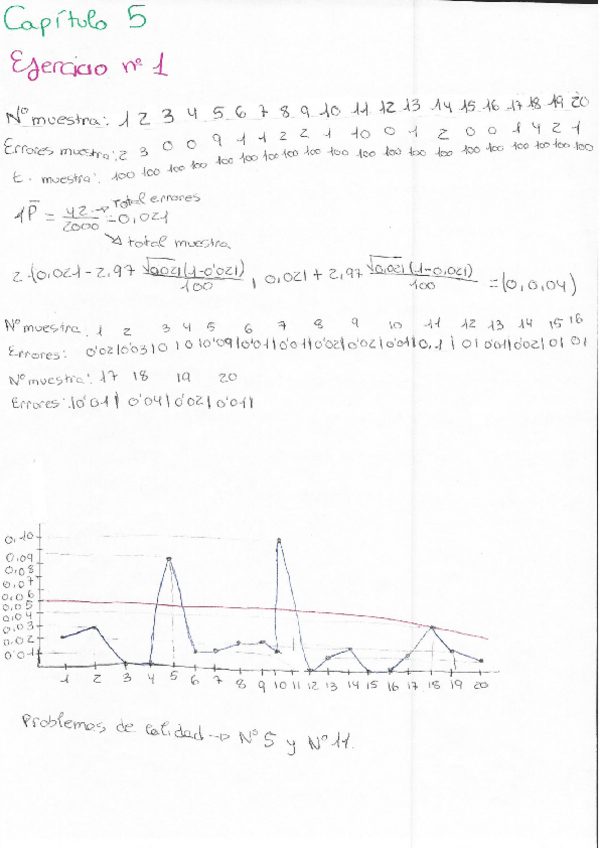 Capítulo 5
Ejercicio nº 1
Nº muestra: 1 2 3 4 5 6 7 8 9 10 11 12 13 14 15 16 17 18 19 20
Errores muestra: 2 3 0 0 9 1 1 2 2 1 10 0 1 2 0 0 1 4 2 1
t. muestra: 100 100 100 100 100 100 100 100 100 100 100 100 100 100 100 100 100 100 100 100
1 P̄ = 42/2000 = 0,021
→ Total errores
↘ total muestra
2 (0,021 - 2,97 √0,021(1-0,021)/100 , 0,021 + 2,97 √0,021(1-0,021)/100 = (0,0,04)
Nº muestra: 1 2 3 4 5 6 7 8 9 10 11 12 13 14 15 16
Errores: 0'02|0'03|0|0|0'09|0'01|0'01|0'02|0'02|0'01|0,1|0|0'01|0'02|0|0|
Nº muestra: 17 18 19 20
Errores: |0'01| 0'04|0'02|0'01|
0,10
0,09
0,08
0,07
0,06
0,05
0,04
0,03
0,02
0,01
1 2 3 4 5 6 7 8 9 10 11 12 13 14 15 16 17 18 19 20
Problemas de calidad → Nº 5 y Nº 11.